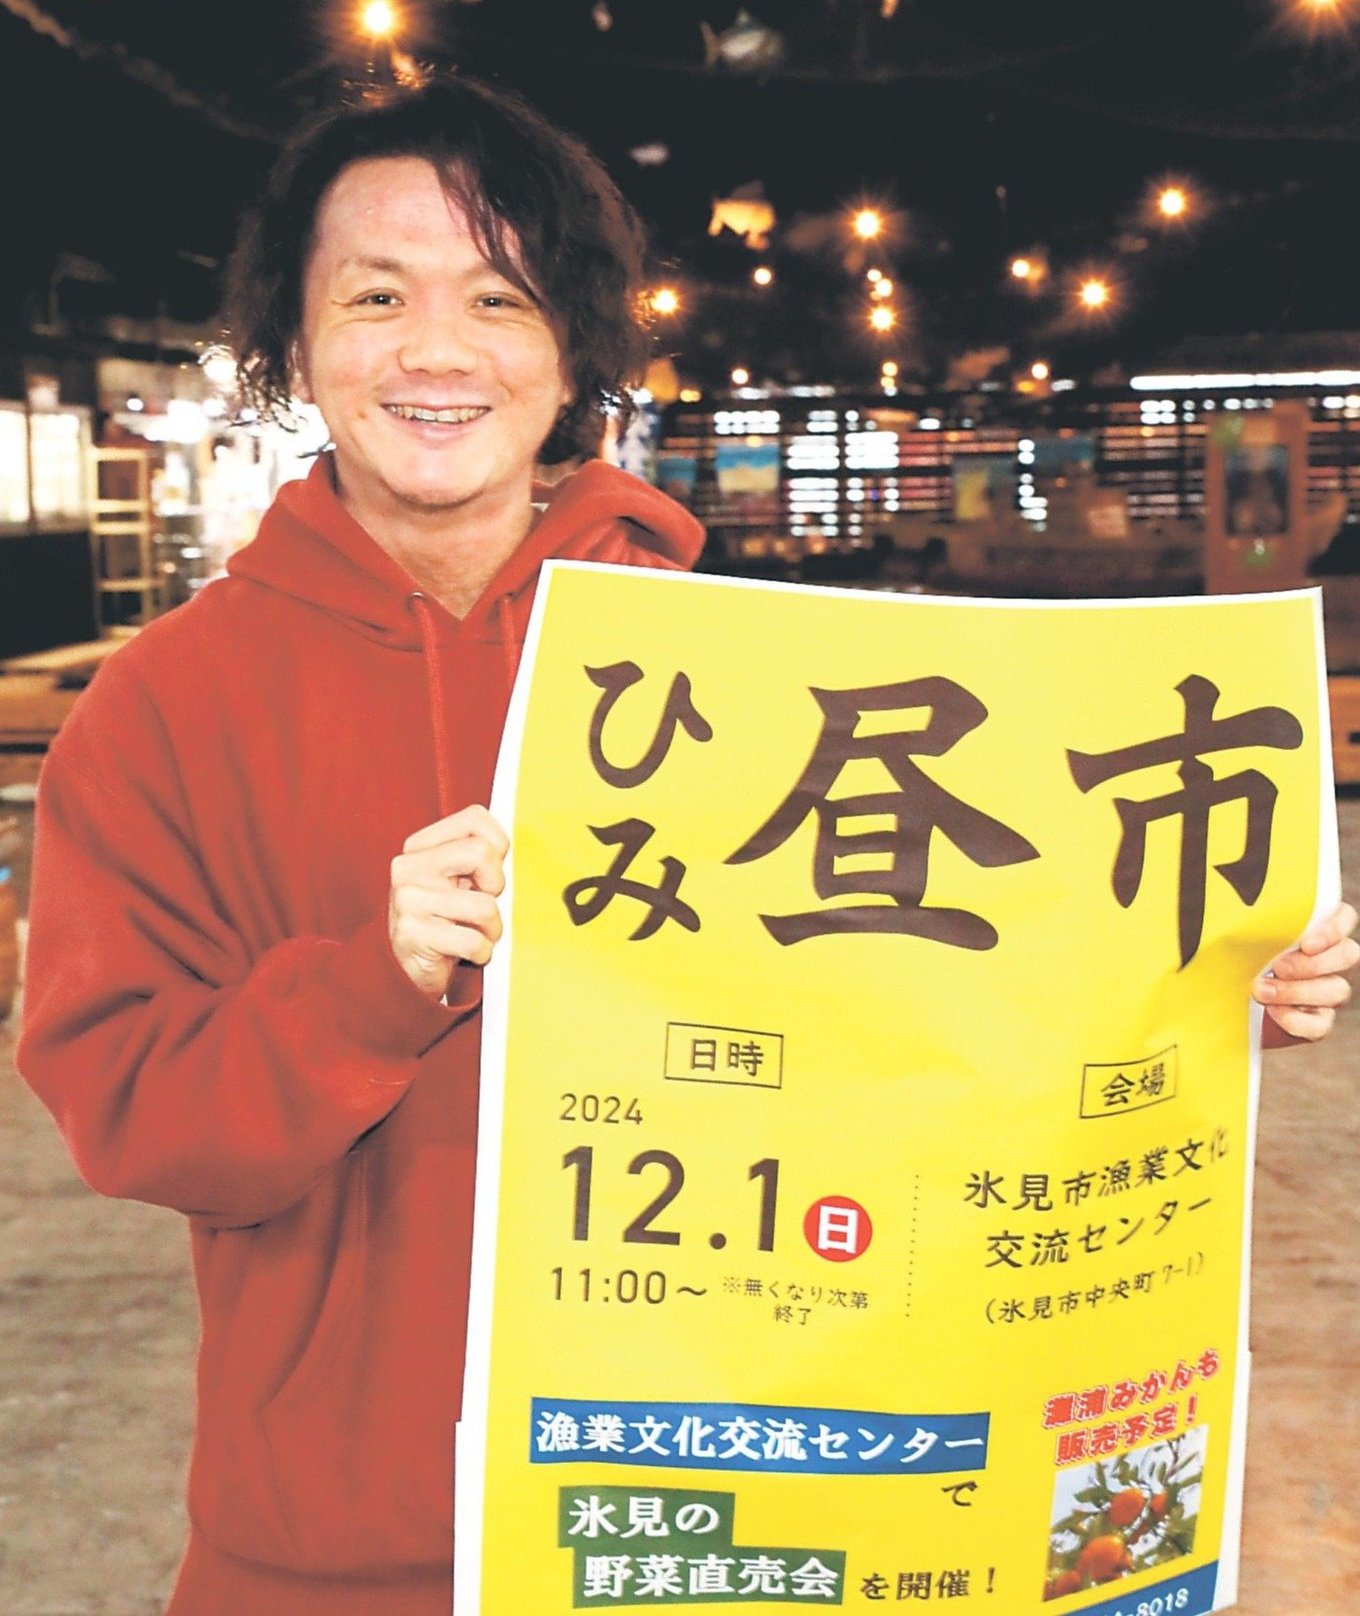 ひみ昼市
日時
2024
12.1日
11:00～ ※無くなり次第
終了
会場
氷見市漁業文化
交流センター
（氷見市中央町7-1）
灘浦みかんも
販売予定！
漁業文化交流センター
で
氷見の
野菜直売会を開催！
-8018